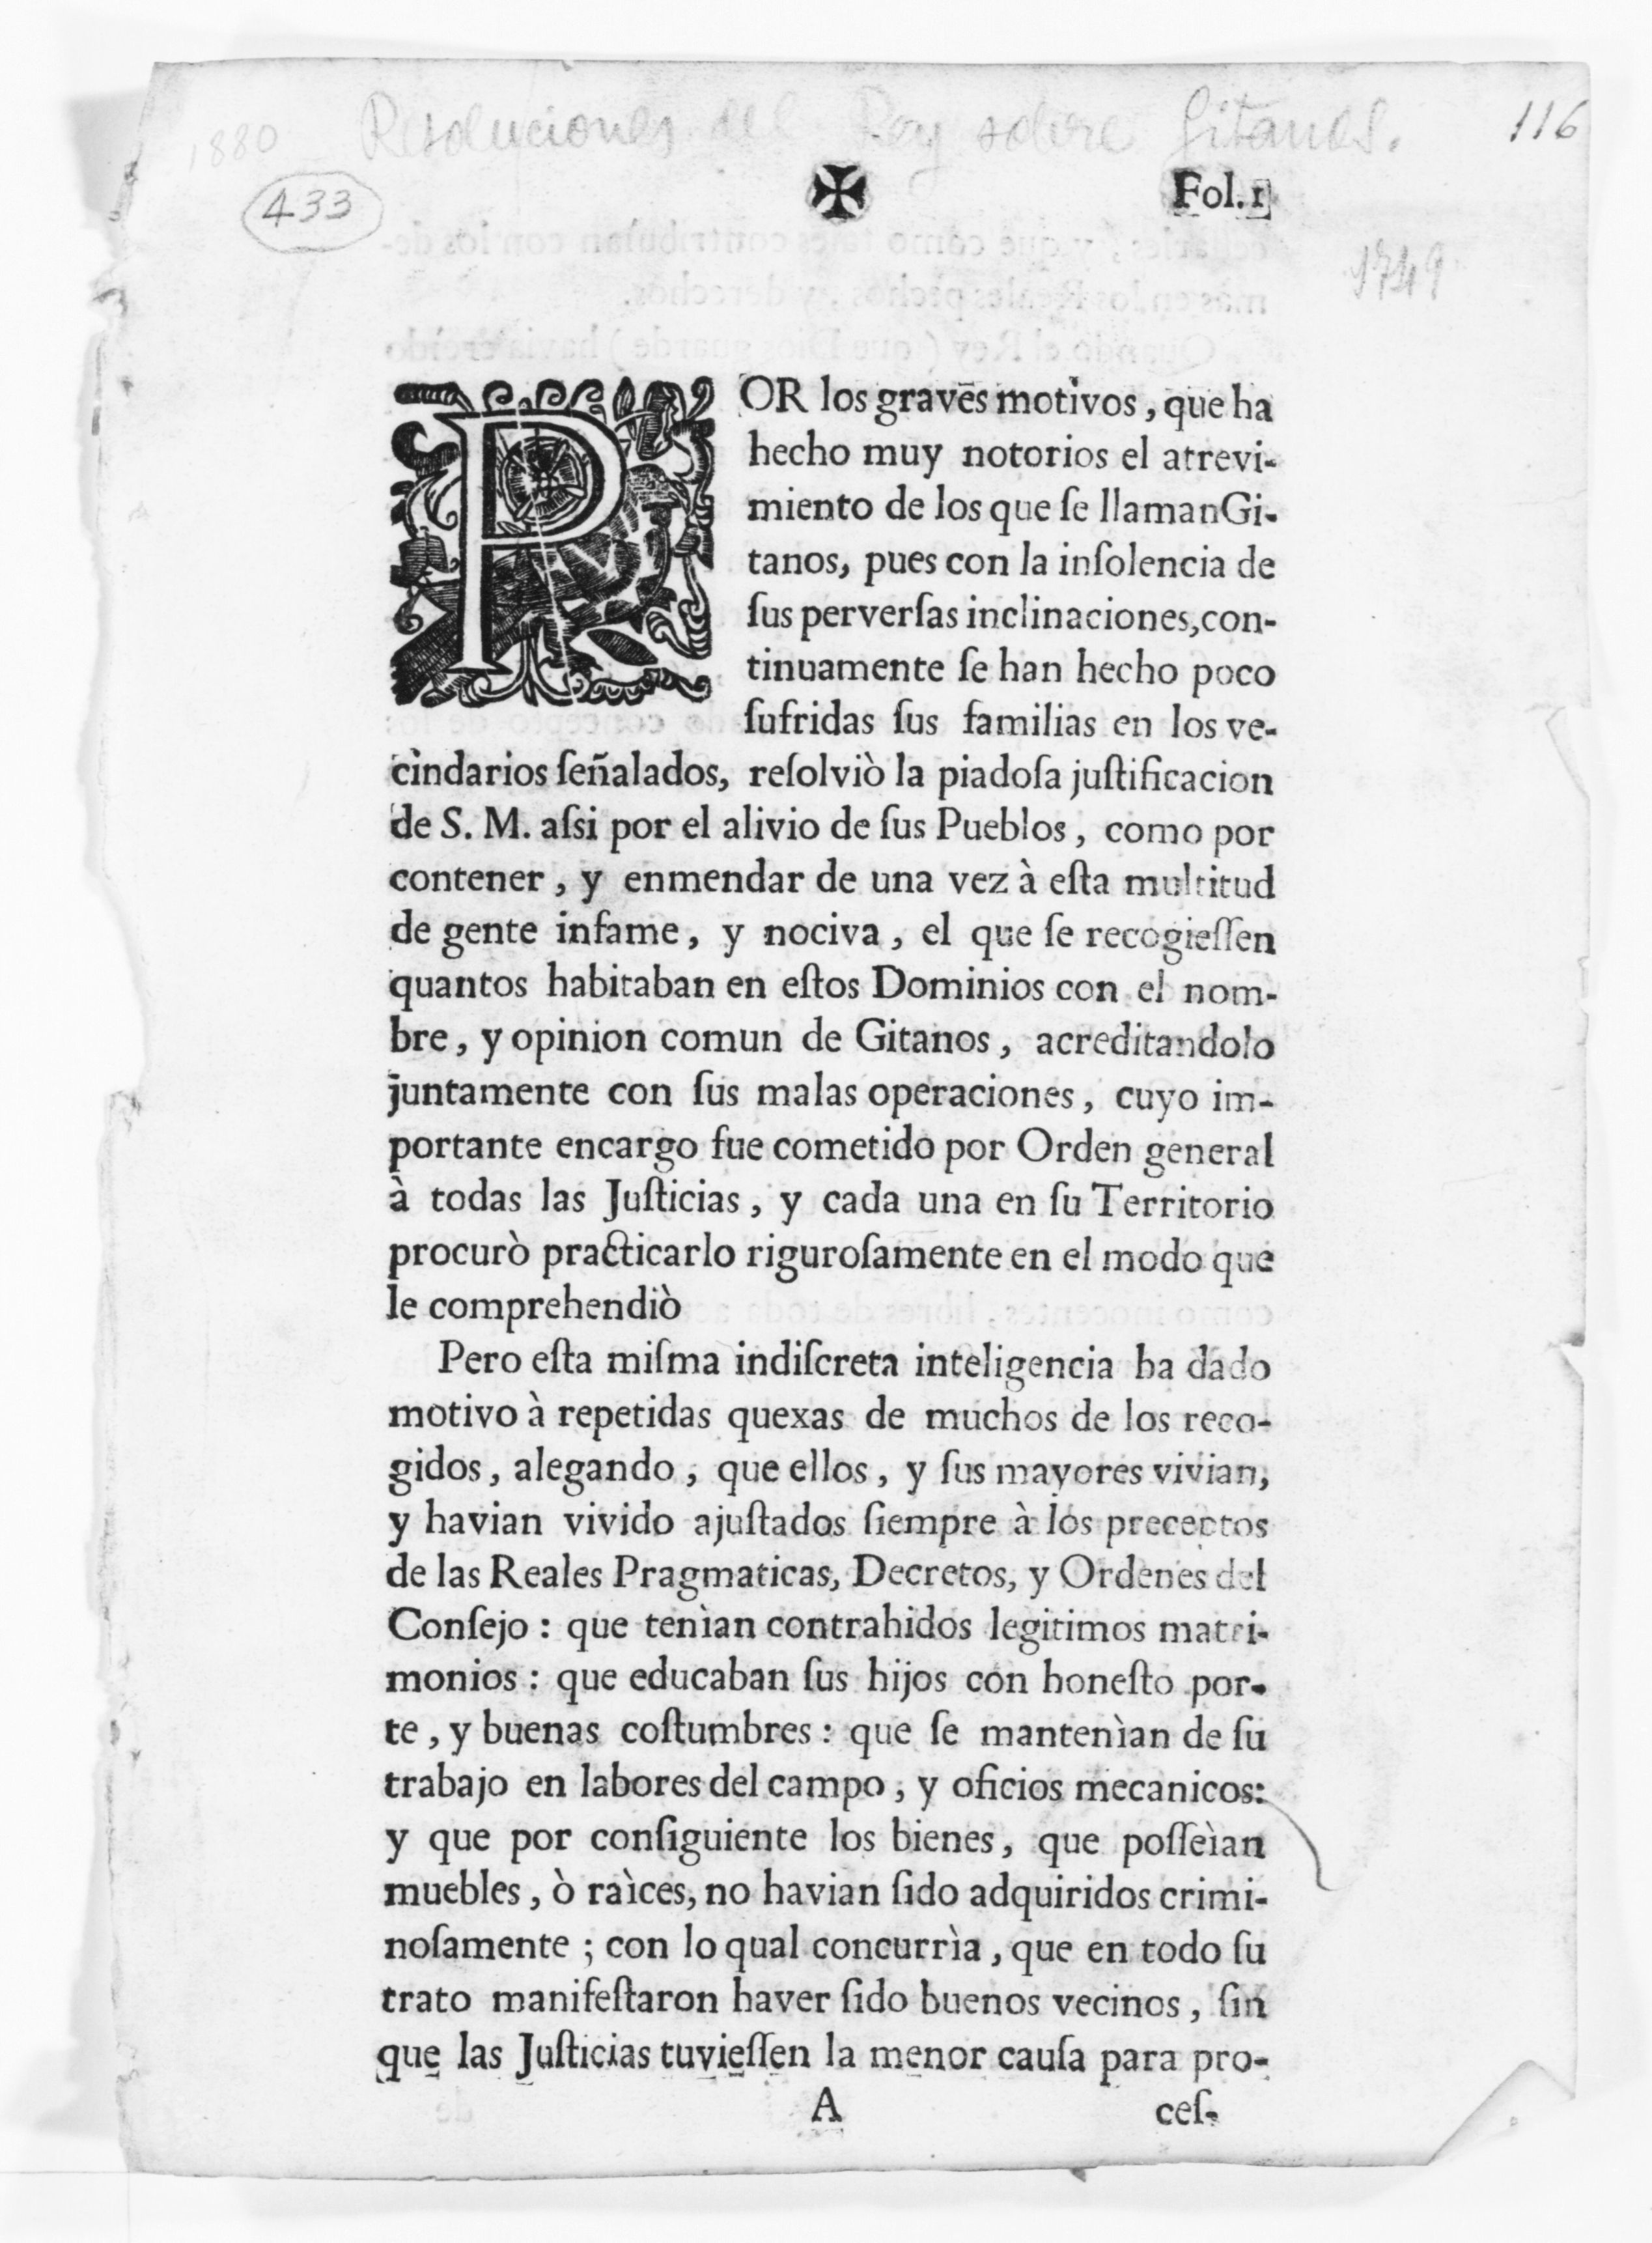 1880 Resoluciones del Rey sobre Gitanos. 116
433
✠ Fol. 1
1749
POR los graves motivos, que ha
hecho muy notorios el atrevi-
miento de los que ſe llamanGi-
tanos, pues con la inſolencia de
ſus perverſas inclinaciones,con-
tinuamente ſe han hecho poco
ſufridas ſus familias en los ve-
cindarios ſeñalados, reſolviò la piadoſa juſtificacion
de S. M. aſsi por el alivio de ſus Pueblos, como por
contener, y enmendar de una vez à eſta multitud
de gente infame, y nociva, el que ſe recogieſſen
quantos habitaban en eſtos Dominios con el nom-
bre, y opinion comun de Gitanos, acreditandolo
juntamente con ſus malas operaciones, cuyo im-
portante encargo fue cometido por Orden general
à todas las Juſticias, y cada una en ſu Territorio
procurò practicarlo riguroſamente en el modo que
le comprehendiò
Pero eſta miſma indiſcreta inteligencia ha dado
motivo à repetidas quexas de muchos de los reco-
gidos, alegando, que ellos, y ſus mayores vivian,
y havian vivido ajuſtados ſiempre à los preceptos
de las Reales Pragmaticas, Decretos, y Ordenes del
Conſejo: que tenìan contrahidos legitimos matri-
monios: que educaban ſus hijos con honeſto por-
te, y buenas coſtumbres: que ſe mantenìan de ſu
trabajo en labores del campo, y oficios mecanicos:
y que por conſiguiente los bienes, que poſſeìan
muebles, ò raìces, no havian ſido adquiridos crimi-
noſamente; con lo qual concurrìa, que en todo ſu
trato manifeſtaron haver ſido buenos vecinos, ſin
que las Juſticias tuvieſſen la menor cauſa para pro-
A ceſ-